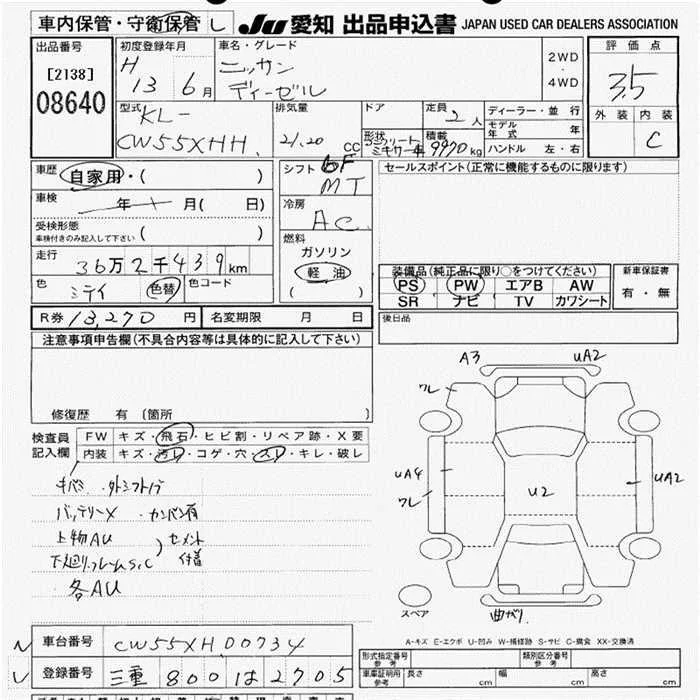 車内保管・守衛保管
JU 愛知 出品申込書 JAPAN USED CAR DEALERS ASSOCIATION
出品番号
[2138]
08640
初度登録年月
H 13 6月
車名・グレード
ニッサン
ディーゼル
2WD
・
4WD
評価点
3.5
外装 内装
C
型式 KL-
CW55XHH
排気量
21,20 cc
ドア
形状
コンクリート
ミキサー車
定員
2人
積載
9970kg
ディーラー・並行
モデル年式 年
ハンドル 左・右
車歴
自家用・( )
車検
年 月( 日)
受検形態
車検付きのみ記入して下さい ( )
走行
36万2千439km
色
シロイ 色替
色コード
シフト 6F
MT
冷房
AC
燃料
ガソリン
軽油
( )
セールスポイント(正常に機能するものに限ります)
装備品(純正品に限り○をつけてください)
PS PW エアB AW
SR ナビ TV カワシート
新車保証書
有・無
R券 13,270円
名変期限 月 日
後日品
注意事項申告欄(不具合内容等は具体的に記入して下さい)
修復歴 有〔箇所 〕
検査員
記入欄
FW キズ・飛石・ヒビ割・リペア跡・X要
内装 キズ・汚レ・コゲ・穴・スレ・キレ・破レ
キバミ
バッテリーX ・カンバン有
上物AU
下廻りフレームS,C
セメント
付着
各AU
A3
UA2
ワレ
UA4
ワレ
U2
UA2
曲がり
スペア
A-キズ E-エクボ U-凹み W-補修跡 S-サビ C-腐食 XX-交換済
車台番号
CW55XH00734
登録番号
三重 800 は 2705
形式指定番号
参考
類別区分番号
参考
車庫証明用
参考
長さ cm
幅 cm
高さ cm